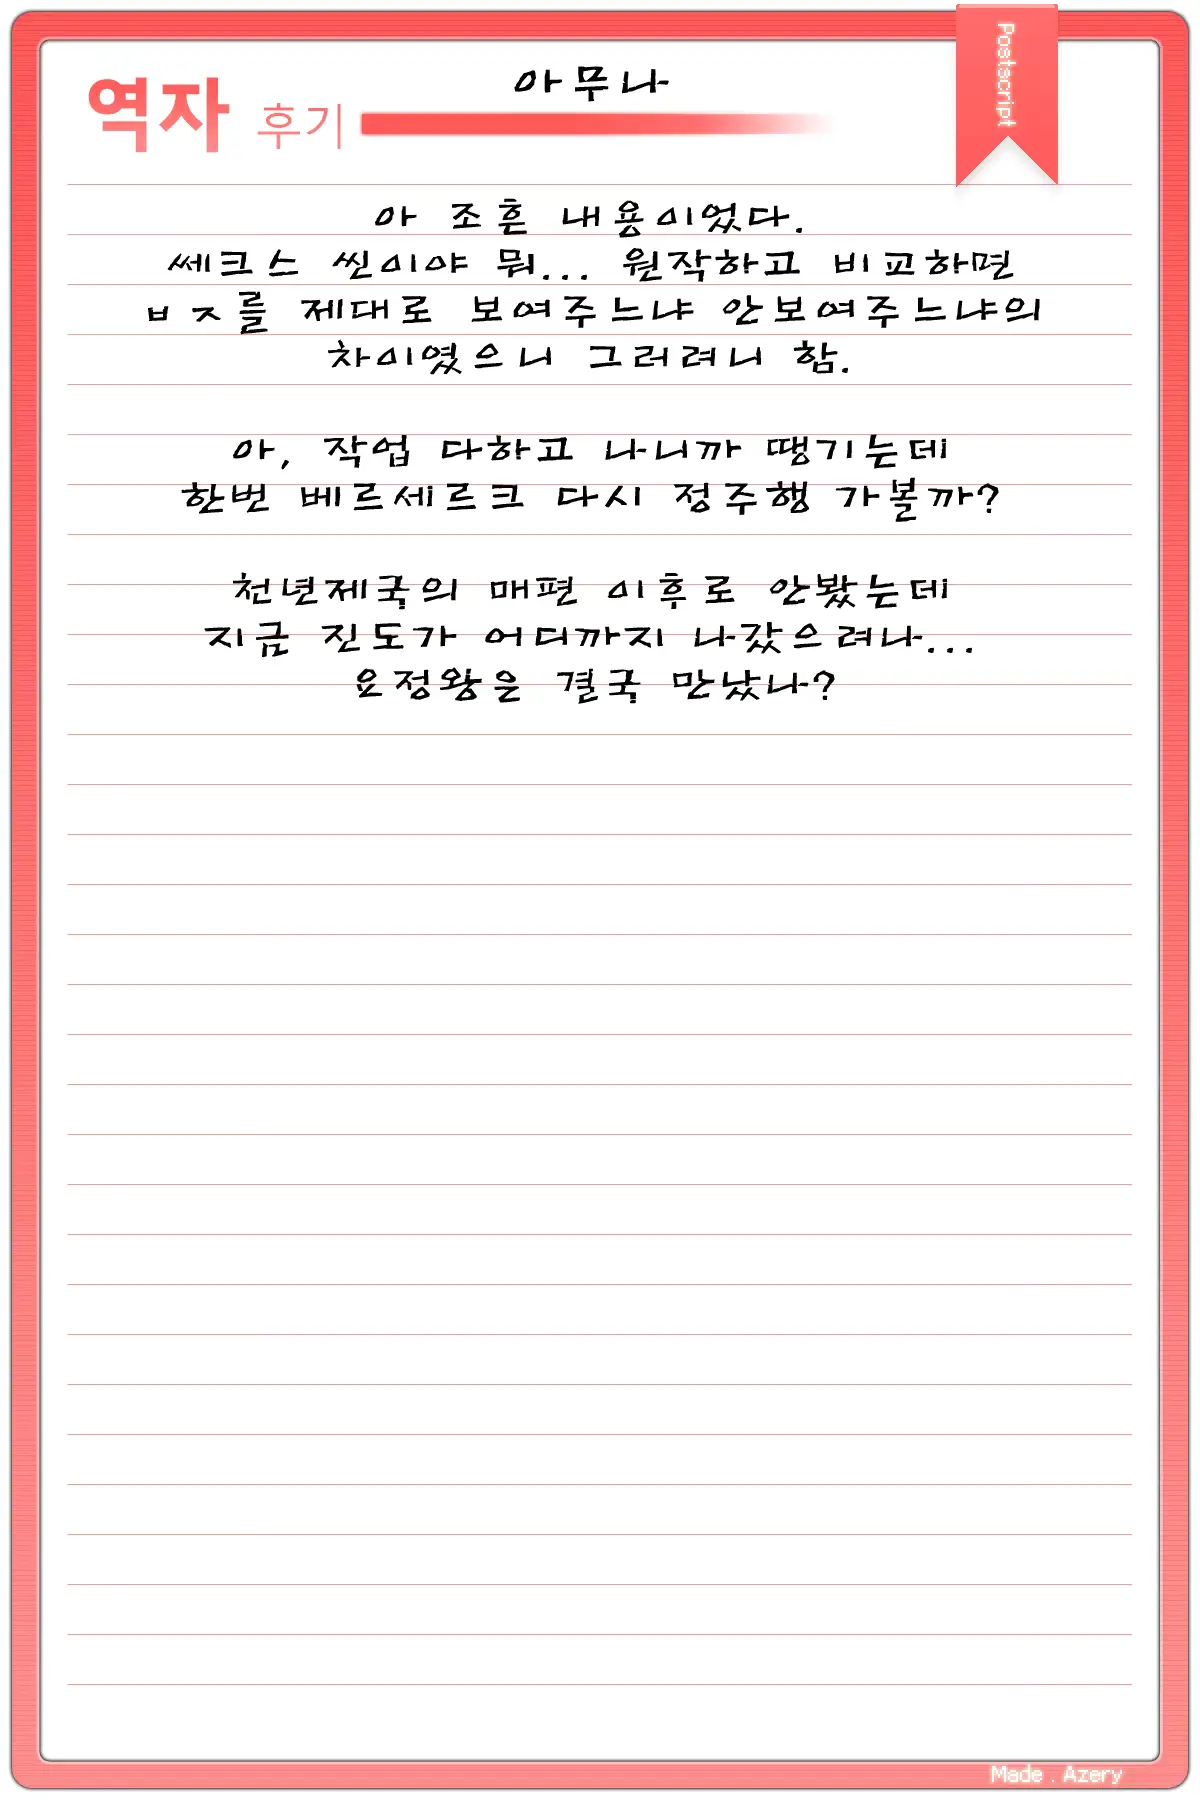 아무나
역자 후기
Postscript
아 조흔 내용이었다.
쎄크스 씬이야 뭐... 원작하고 비교하면
ㅂㅈ를 제대로 보여주느냐 안보여주느냐의
차이였으니 그러려니 함.
아, 작업 다하고 나니까 땡기는데
한번 베르세르크 다시 정주행 가볼까?
천년제국의 매편 이후로 안봤는데
지금 진도가 어디까지 나갔으려나...
요정왕은 결국 만났나?
Made . Azery